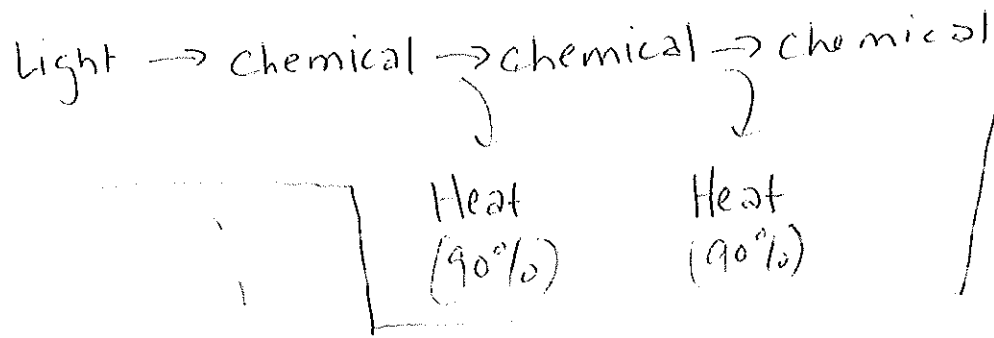 Light → chemical → chemical → chemical
Heat Heat
(90%) (90%)